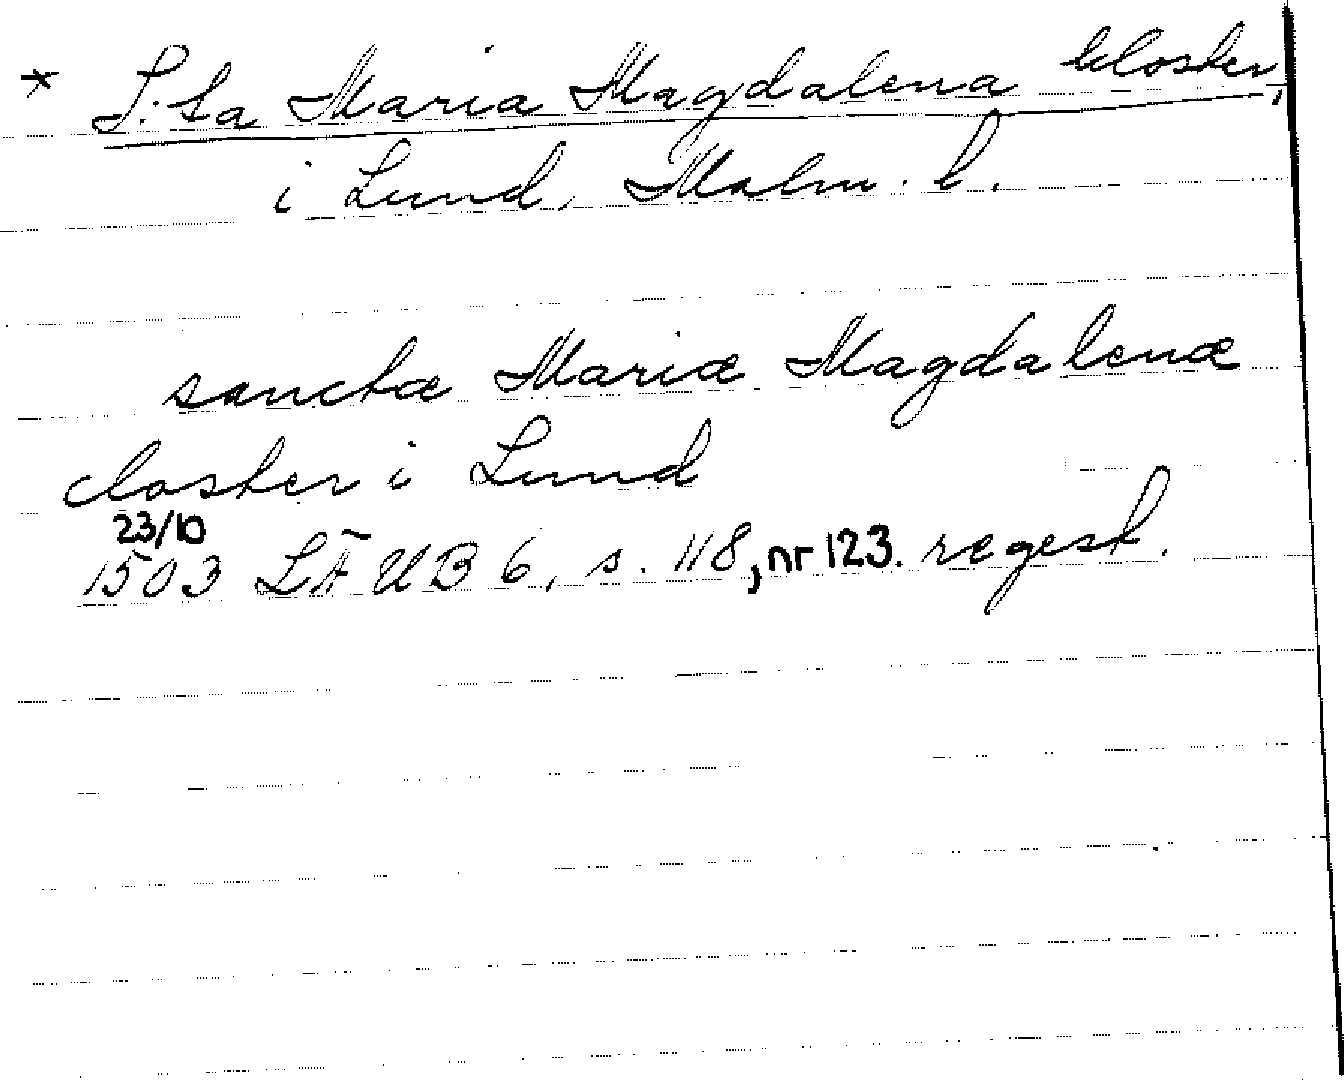 * S:ta Maria Magdalena kloster,
i Lund, Malm. l.
sanctæ Mariæ Magdalenæ
closter i Lund
23/10
1503 LÄUB 6, s. 118, nr 123. regest.